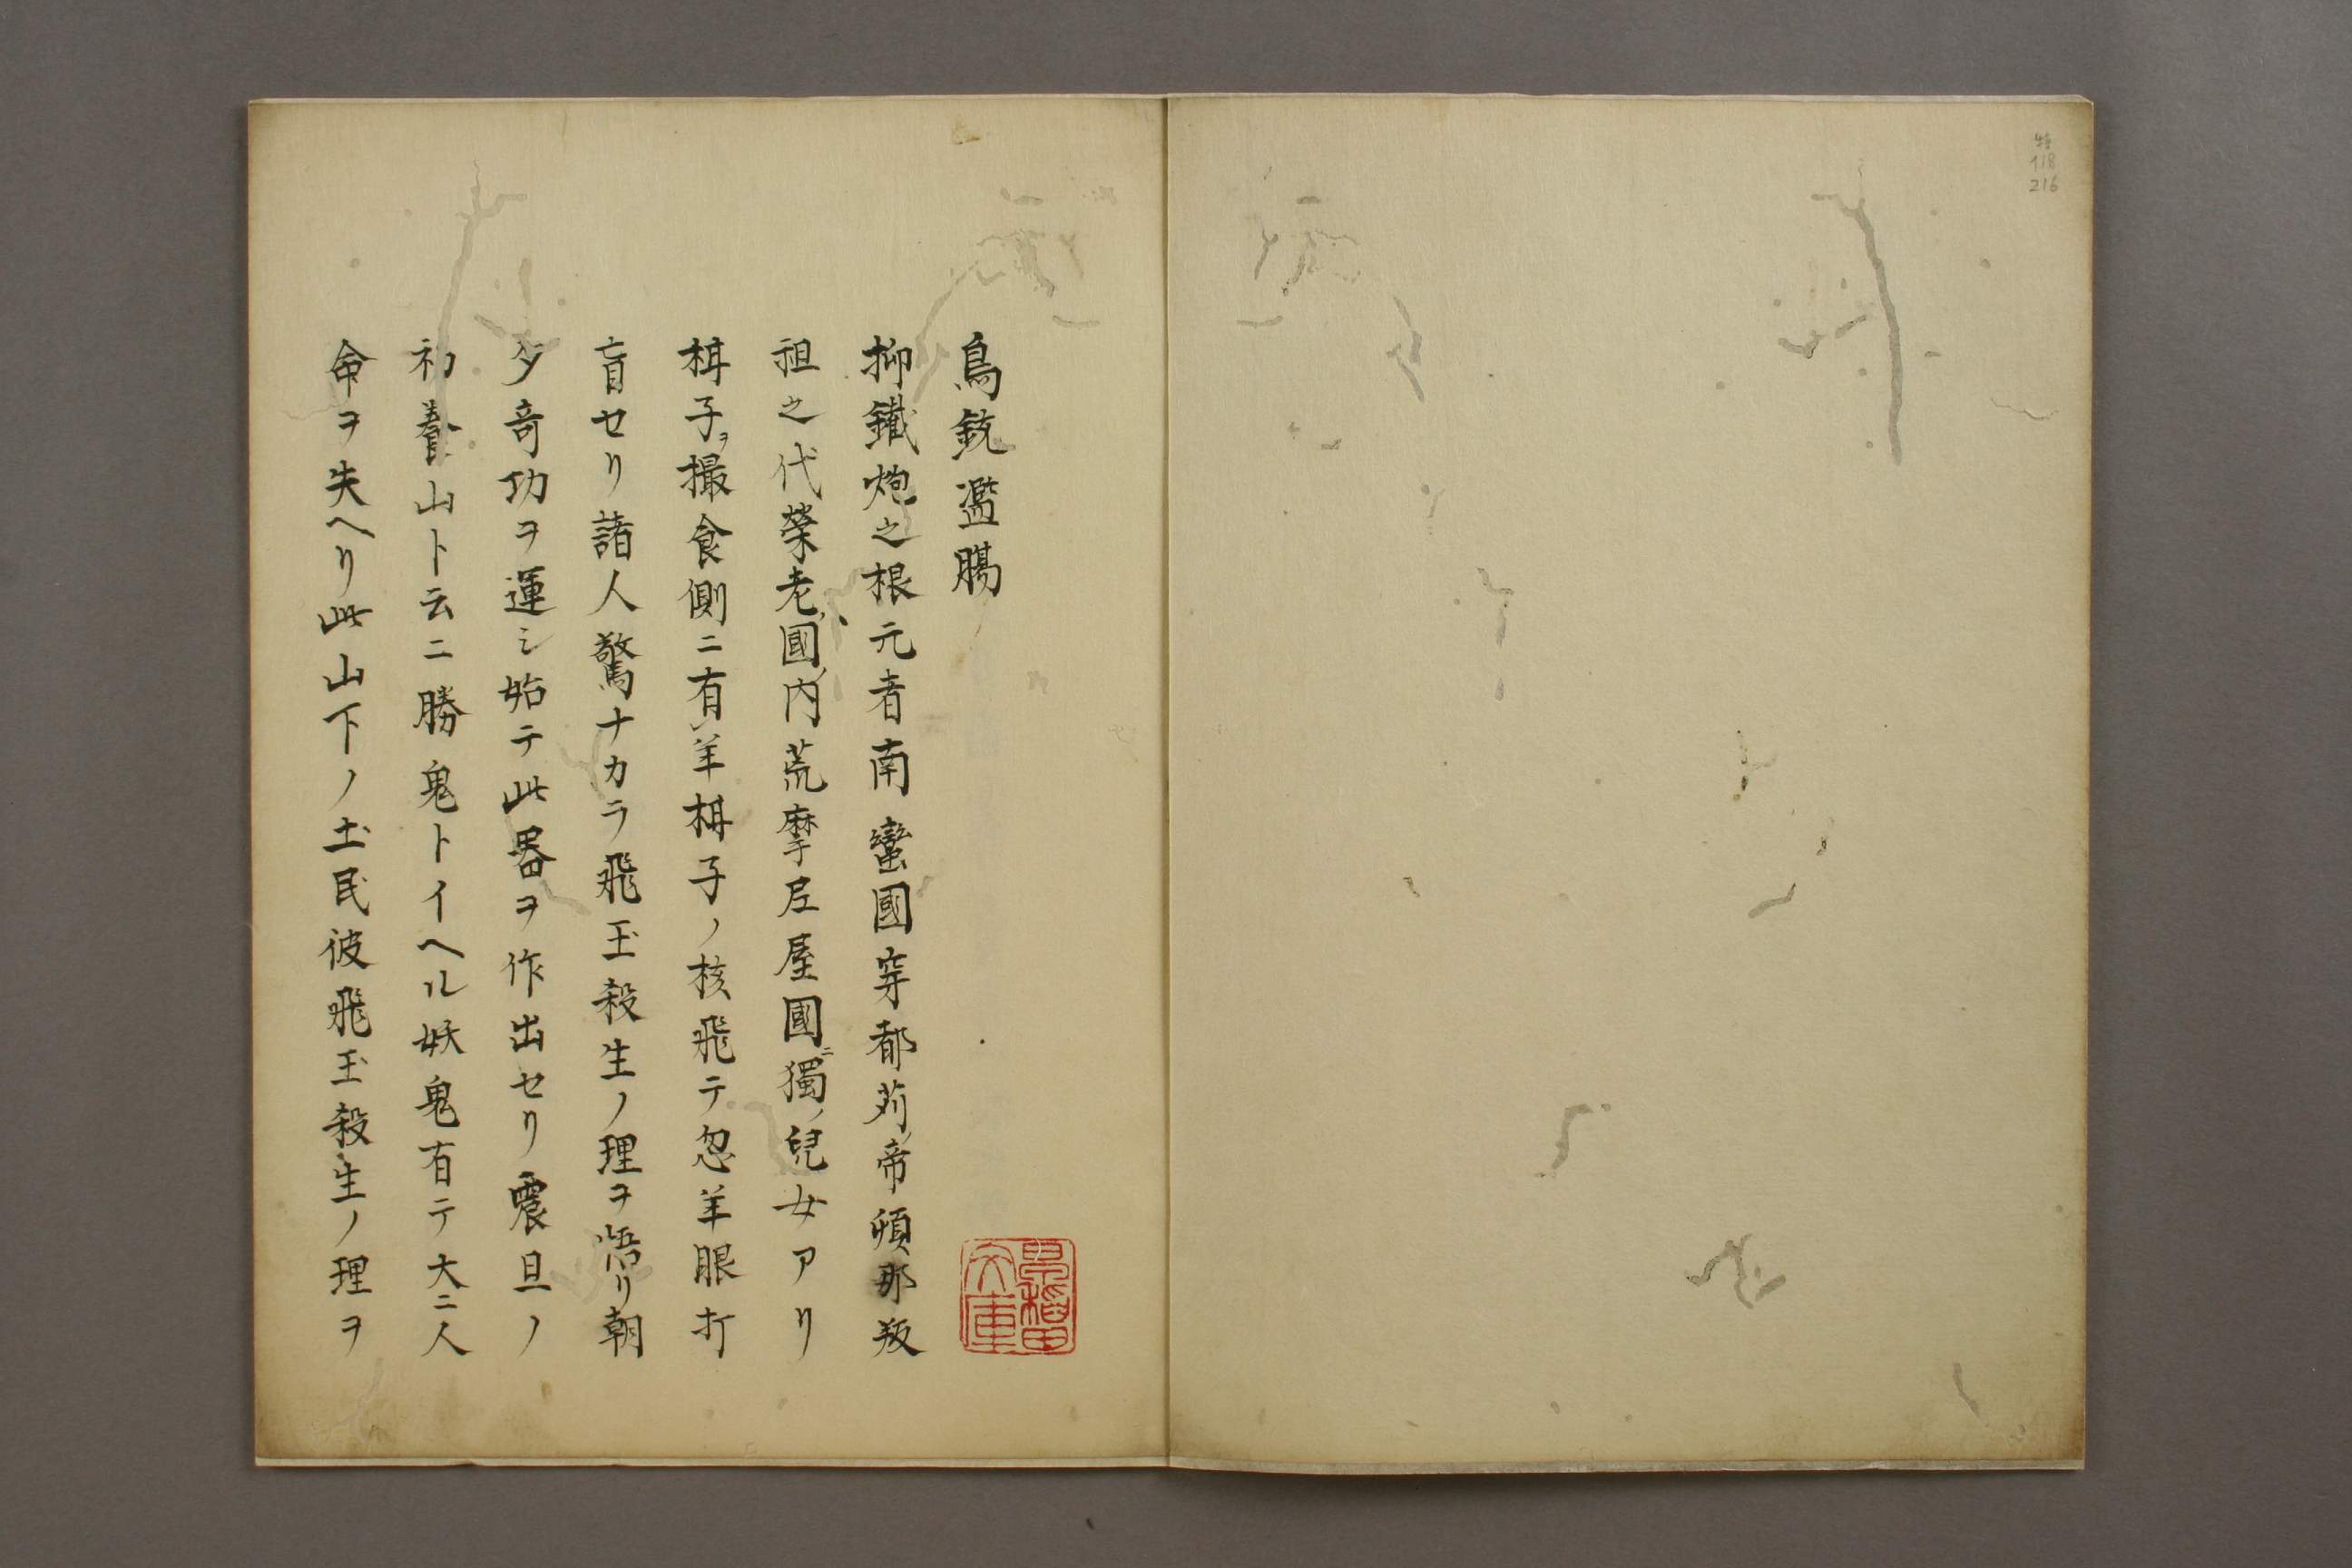 鳥銃濫觴
抑鐵炮之根元者南蠻國穿都苅帝頻那叛
祖之代榮老國ノ内荒摩尼屋國ニ獨ノ兒女アリ
楫子ヲ撮食側ニ有ノ羊楫子ノ核飛テ忽羊眼打
盲セリ諸人驚ナカラ飛玉殺生ノ理ヲ悟リ朝
夕奇功ヲ運シ始テ此器ヲ作出セリ震旦ノ
初養山ト云ニ勝鬼トイヘル妖鬼有テ大ニ人
命ヲ失ヘリ此山下ノ土民彼飛玉殺生ノ理ヲ
早稲田文庫
特
118
216